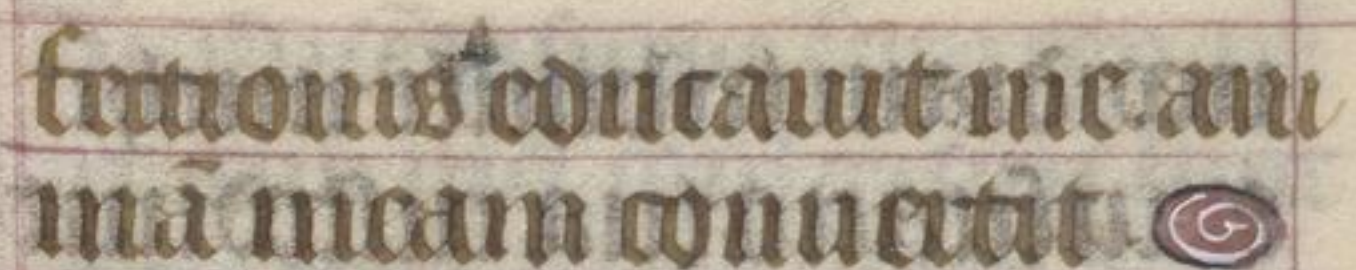 fectionis educauit me ani
mā meam conuertit